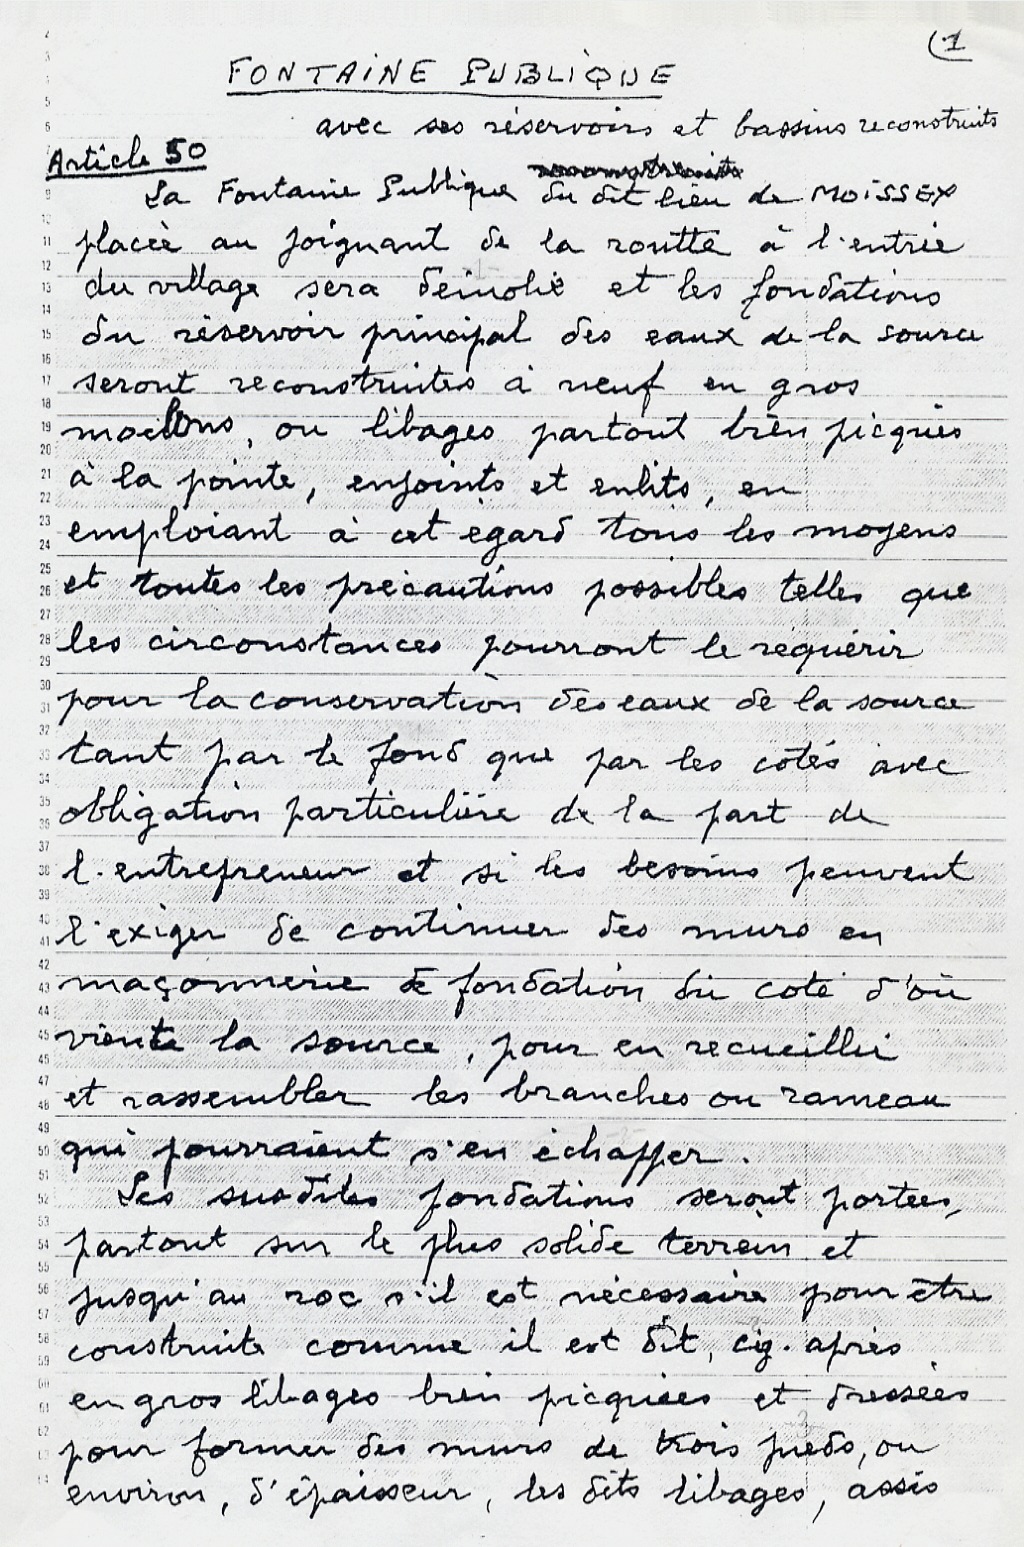 (1
FONTAINE PUBLIQUE
avec ses réservoirs et bassins reconstruits
Article 50
La Fontaine Publique du dit lieu de MOISSEY
placée au joignant de la routte à l'entrée
du village sera démolie et les fondations
du réservoir principal des eaux de la source
seront reconstruites à neuf en gros
moellons, ou libages partout bien picqués
à la pointe, enjoints et enlits, en
emploiant à cet égard tous les moyens
et toutes les précautions possibles telles que
les circonstances pourront le réquérir
pour la conservation des eaux de la source
tant par le fond que par les cotés avec
obligation particulière de la part de
l'entrepreneur et si les besoins peuvent
l'exiger de continuer des murs en
maçonnerie de fondation du coté d'où
viente la source, pour en recueillir
et rassembler les branches ou rameau
qui pourraient s'en échapper.
Les susdites fondations seront portées,
partout sur le plus solide terrein et
jusqu'au roc s'il est nécessaire pour être
construite comme il est dit, cy. après
en gros libages bien picquées et dressées
pour former des murs de trois pieds, ou
environ, d'épaisseur, les dits libages, assis